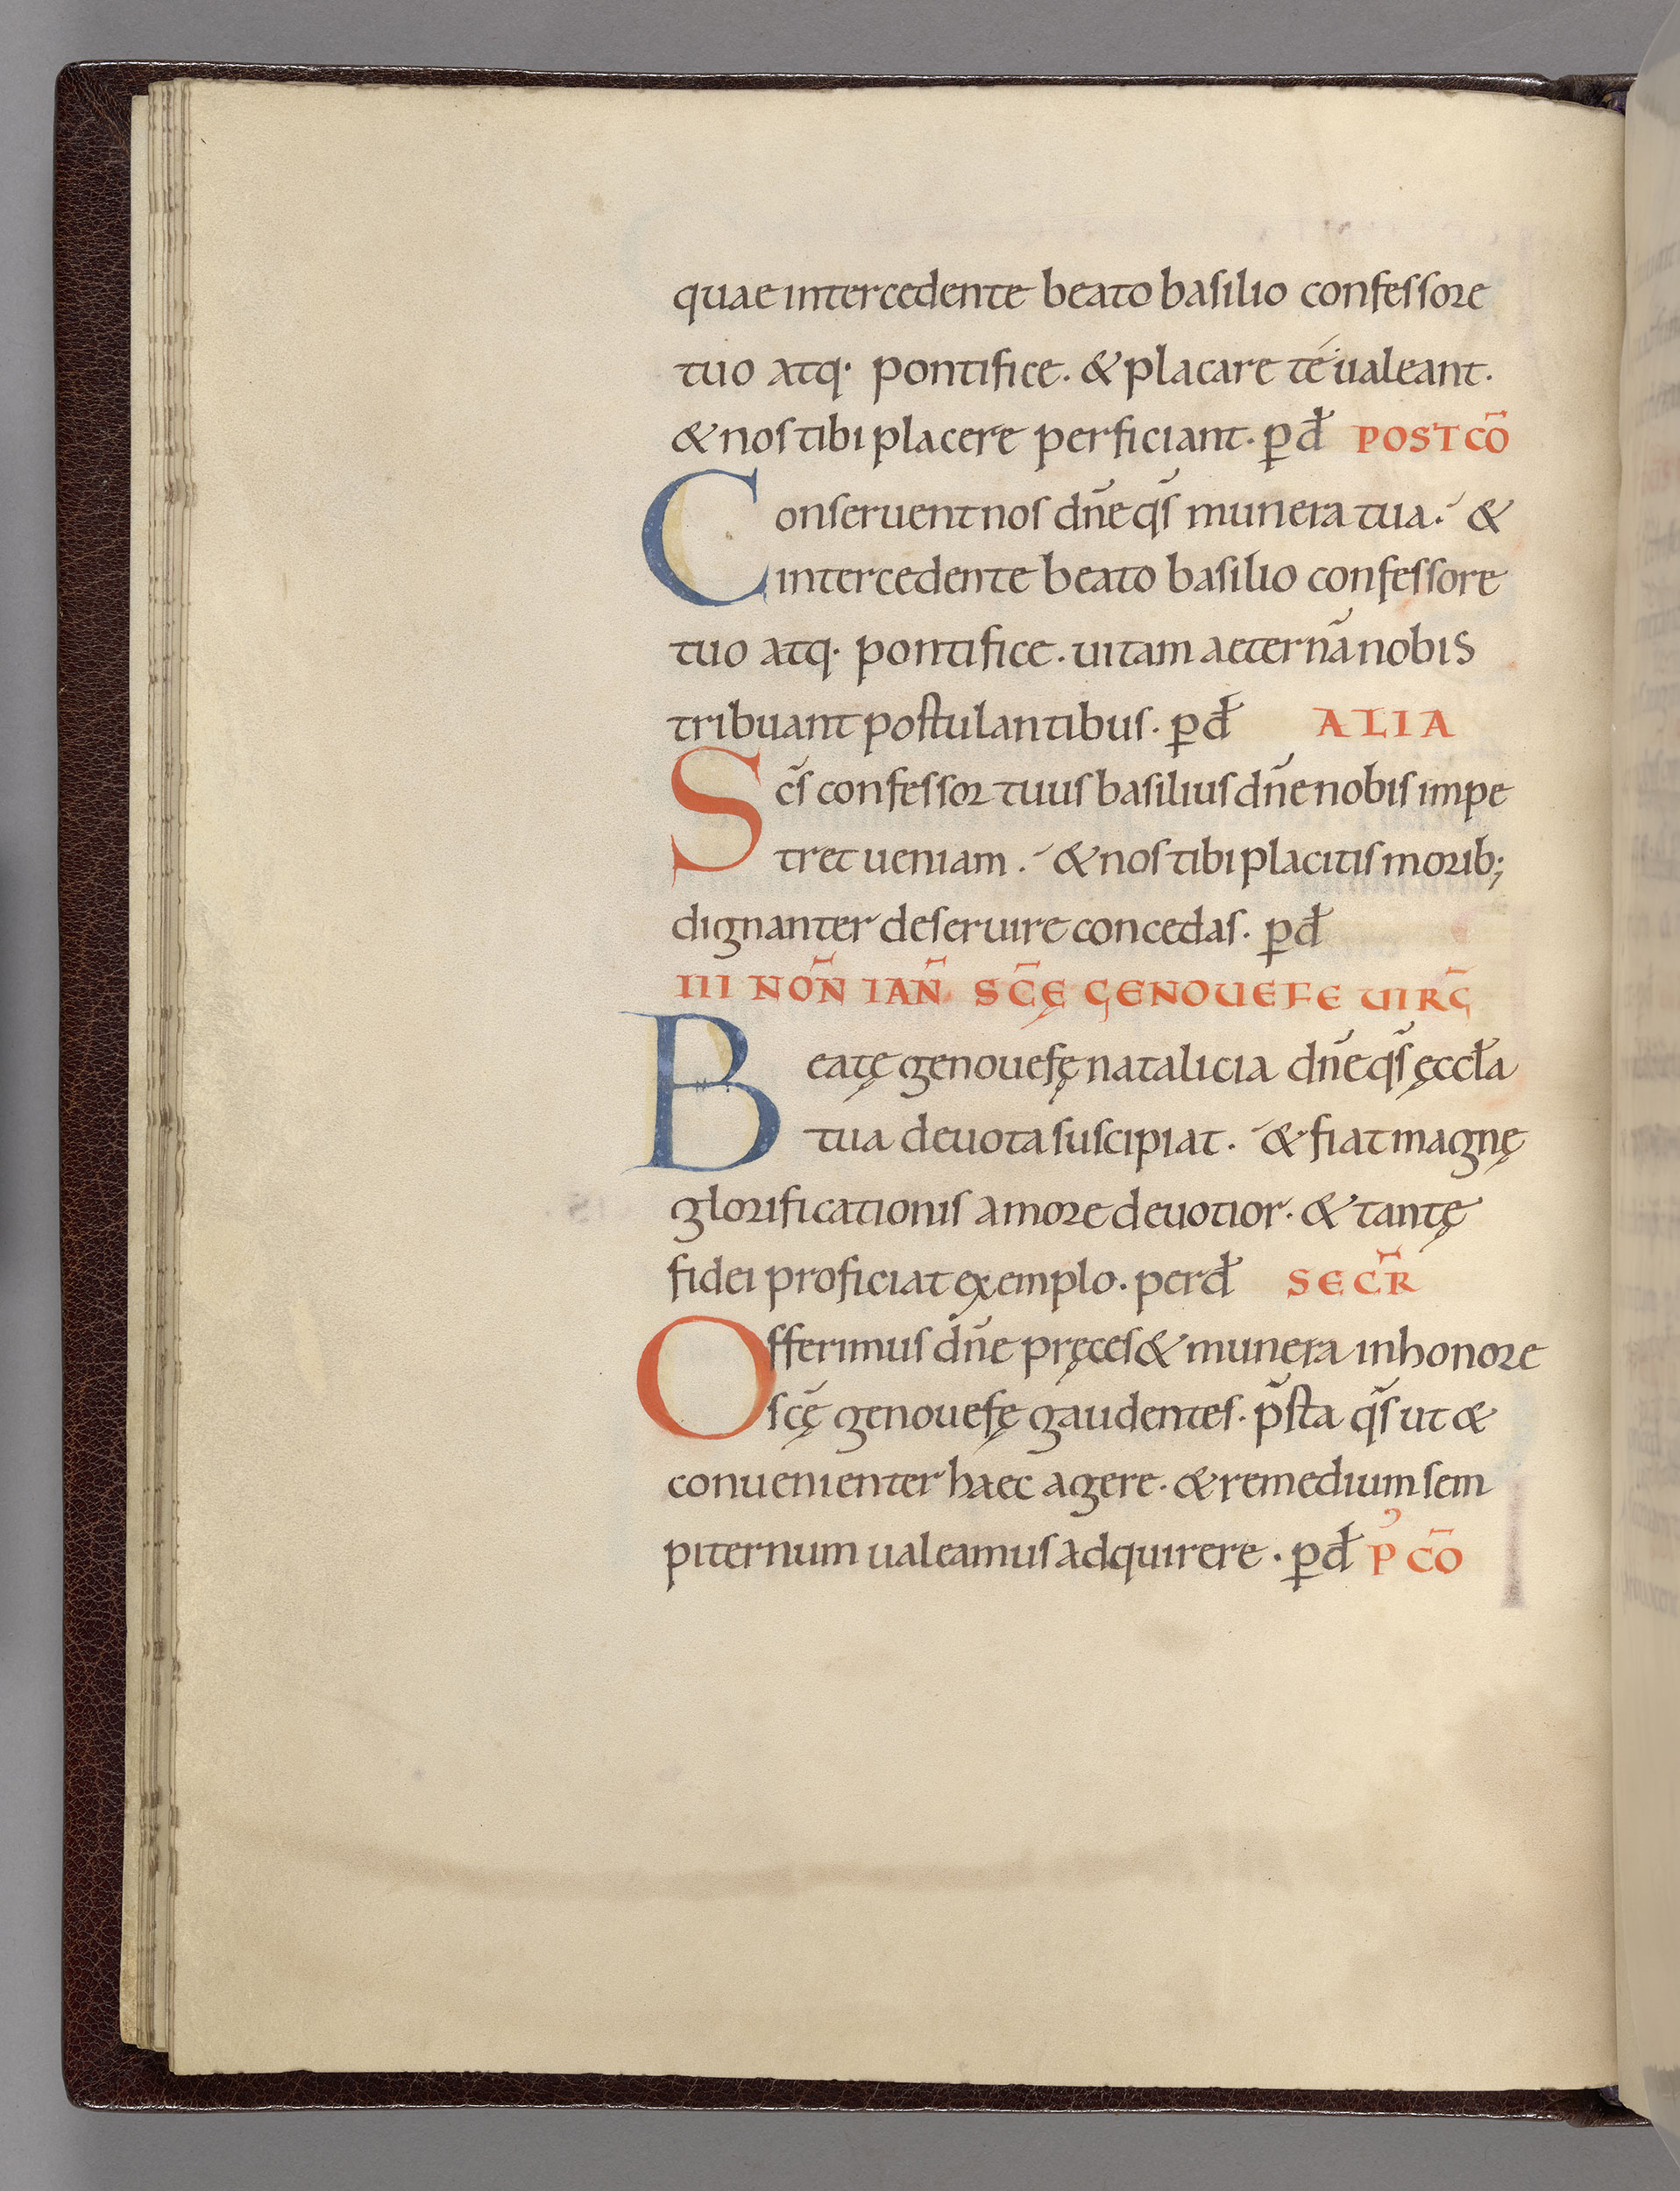 quae intercedente beato basilio confessore
tuo atq· pontifice. & placare té ualeant.
& nos tibi placere perficiant. p̱ đ POST CŌ
Conseruent nos dn̄e qs̄ munera tua. &
intercedente beato basilio confessore
tuo atq· pontifice. uitam aeternā nobis
tribuant postulantibus. p̱ đ ALIA
Sc̄s confessor tuus basilius dn̄e nobis impe
tret ueniam. & nos tibi placitis morib;
dignanter deseruire concedas. p̱ đ
III NOÑ IAÑ SC̄Ę GENOUEFE UIRḠ
Beatę genouefę natalicia dn̄e qs̄ ęccła
tua deuota suscipiat. & fiat magnę
glorificationis amore deuotior. & tantę
fidei proficiat exemplo. per đ SECR̄
Offerimus dn̄e pręces & munera in honore
sc̄ę genouefę gaudentes. p̄sta qs̄ ut &
conuenienter haec agere. & remedium sem
piternum ualeamus adquirere. p̱ đ P' CŌ